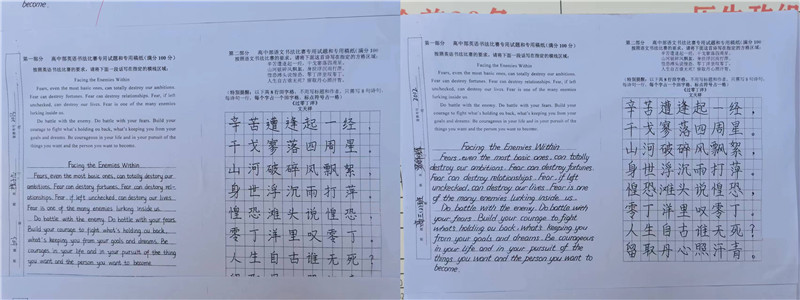 become.
第一部分 高中部英语书法比赛专用试题和专用稿纸(满分100分)
按照英语书法比赛的要求，请将下面一段话写在指定的横线区域:
Facing the Enemies Within
Fears, even the most basic ones, can totally destroy our ambitions.
Fear can destroy fortunes. Fear can destroy relationships. Fear, if left
unchecked, can destroy our lives. Fear is one of the many enemies
lurking inside us.
Do battle with the enemy. Do battle with your fears. Build your
courage to fight what's holding you back, what's keeping you from your
goals and dreams. Be courageous in your life and in your pursuit of the
things you want and the person you want to become.
Facing the Enemies Within
Fears, even the most basic ones, can totally destory our
ambitions. Fear can destory fortunes. Fear can destory rel-
ationships. Fear, if left unchecked, can destory our lives.
Fear is one of the many enemies lurking inside us.
Do battle with the enemy. Do battle with your fears.
Build your courage to fight what's holding ou back,
what's keeping you from your goals and dreams. Be
courageous in your life and in your pursuit of the thing
you want and the person you want to become.
第二部分 高中部语文书法比赛专用试题和专用稿纸(满分100
按照语文书法比赛的要求，请将下面这首诗写在指定的方格区域:
辛苦遭逢起一经，干戈寥落四周星。
山河破碎风飘絮，身世浮沉雨打萍。
惶恐滩头说惶恐，零丁洋里叹零丁。
人生自古谁无死？留取丹心照汗青。
《过零丁洋》
文天祥
辛苦遭逢起一经，
干戈寥落四周星。
山河破碎风飘絮，
身世浮沉雨打萍。
惶恐滩头说惶恐，
零丁洋里叹零丁。
人生自古谁无死？
第一部分 高中部英语书法比赛专用试题和专用稿纸(满分100分)
按照英语书法比赛的要求，请将下面一段话写在指定的横线区域:
Facing the Enemies Within
Fears, even the most basic ones, can totally destroy our ambitions.
Fear can destroy fortunes. Fear can destroy relationships. Fear, if left
unchecked, can destroy our lives. Fear is one of the many enemies
lurking inside us.
Do battle with the enemy. Do battle with your fears. Build your
courage to fight what's holding you back, what's keeping you from your
goals and dreams. Be courageous in your life and in your pursuit of the
things you want and the person you want to become.
Facing the Enemies Within
Fears, even the most basic ones, can totally
destroy our ambitions. Fear can destroy fortunes.
Fear can destroy relationships. Fear, if left
unchecked, can destroy our lives. Fear is one
of the many enemies lurking inside us.
Do battle with the enemy. Do battle with
your fears. Build your courage to fight
what's holding you back, what's keeping you
from your goals and dreams. Be courageous
in your life and in your pursuit of the
things you want and the person you want to
become.
第二部分 高中部语文书法比赛专用试题和专用稿纸(满分100
按照语文书法比赛的要求，请将下面这首诗写在指定的方格区域:
《过零丁洋》
文天祥
辛苦遭逢起一经，
干戈寥落四周星。
山河破碎风飘絮，
身世浮沉雨打萍。
惶恐滩头说惶恐，
零丁洋里叹零丁。
人生自古谁无死？
留取丹心照汗青。